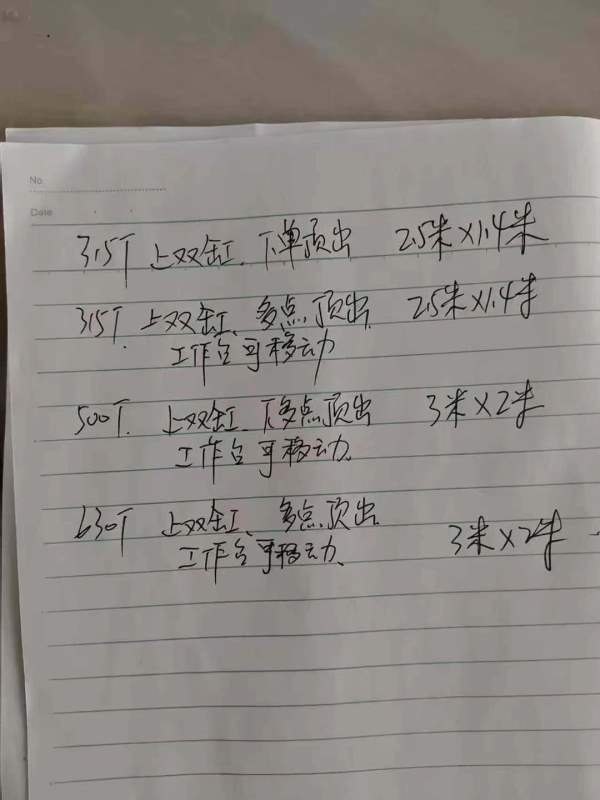 No.
Date
315T 上双缸、下单顶出 2.5米×1.4米
315T. 上双缸、多点顶出. 2.5米×1.4米
工作台可移动
500T. 上双缸、下多点顶出 3米×2米
工作台可移动.
630T 上双缸、多点顶出
工作台可移动、 3米×2米